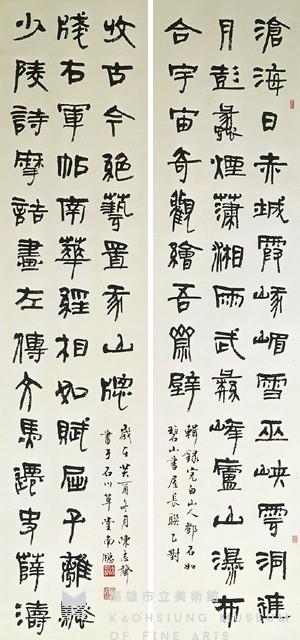 滄海日赤城霞峨嵋雪巫峽雲洞庭
月彭蠡煙瀟湘雨武彝峰廬山瀑布
合宇宙奇觀繪吾齋壁
輯錄完白山人鄧石如
碧山書屋長聯乙對
少陵詩摩詰畫左傳文馬遷史薛濤
牋右軍帖南華經相如賦屈子離騷
收古今絕藝置我山牕
歲在癸酉冬月陳志
書于石川草堂南牕
高雄市立美術館
KAOHSIUNG MUSEUM
OF FINE ARTS